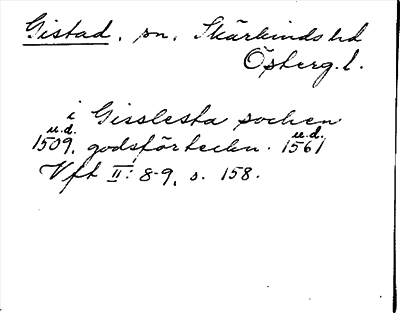 Gistad, sn, Skärkinds hd
Österg. l.
i Gisslesta sochen
u.d. u.d.
1509, godsförteckn. 1561
Vft II: 8-9, s. 158.